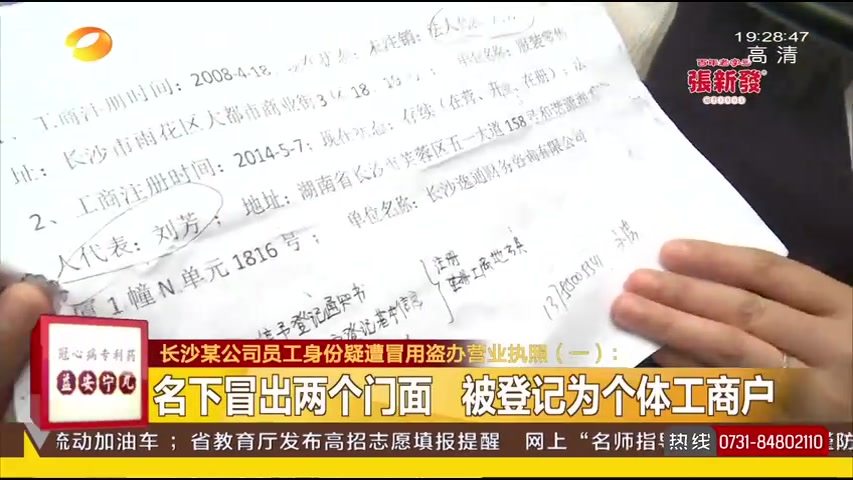 19:28:47
高清
百年老字号
張新發
工商注册时间：2008-4-18
未注销；法人
址：长沙市雨花区大都市商业街3
单位名称：服装零售
2、工商注册时间：2014-5-7；现在状态：存续（在营、开业、在册）；法
人代表：刘芳；地址：湖南省长沙市芙蓉区五一大道158号和谐潇湘
厦1幢N单元1816号；单位名称：长沙逸通财务咨询有限公司
准予登记通知书
登记基本信息
注册
冠心病专利药
益安宁丸
长沙某公司员工身份疑遭冒用盗办营业执照（一）：
名下冒出两个门面 被登记为个体工商户
流动加油车；省教育厅发布高招志愿填报提醒 网上“名师指导
热线 0731-84802110